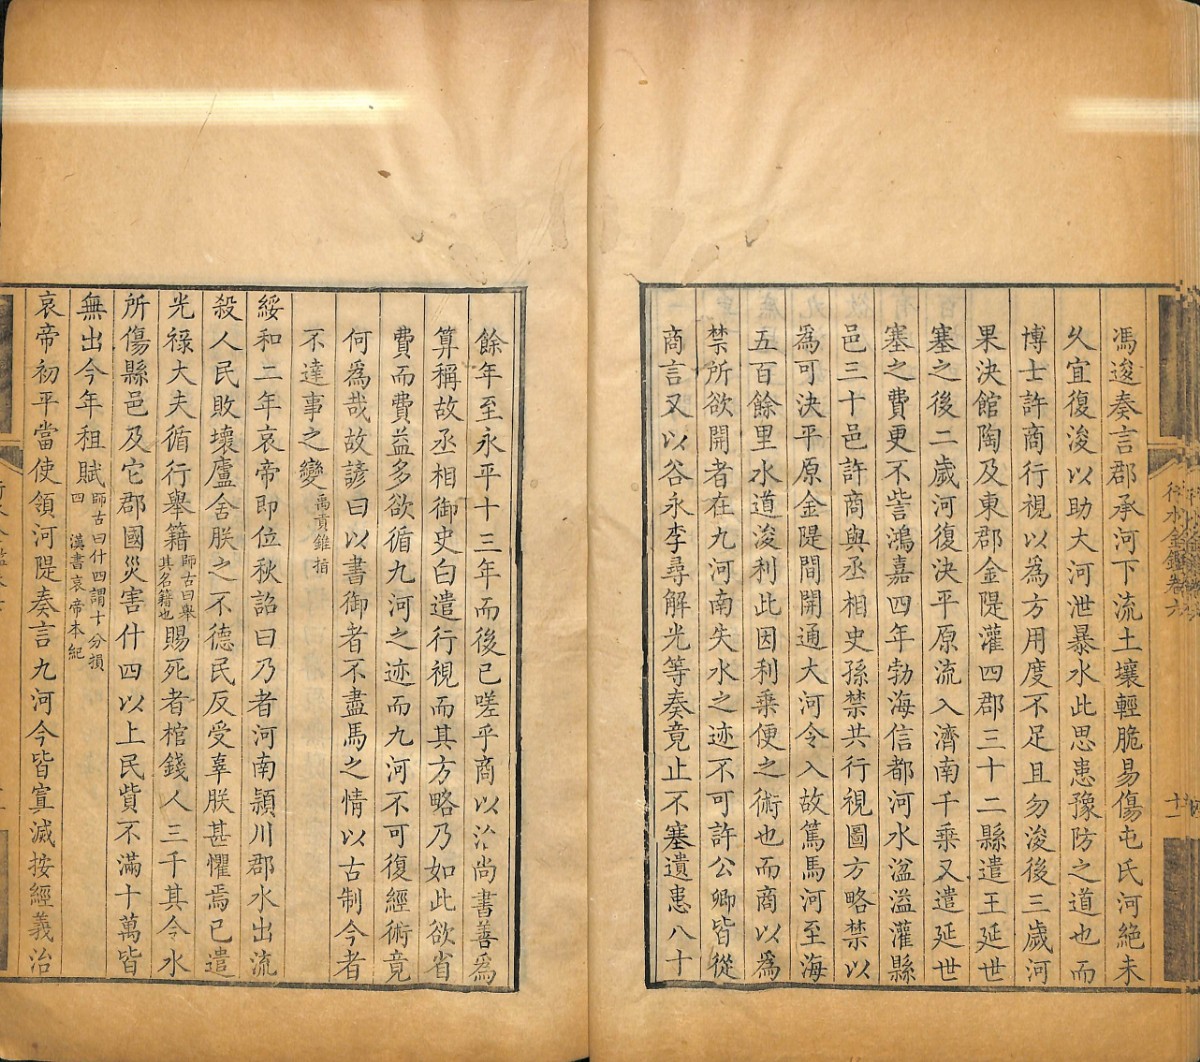 行水金鑑卷六
十一
馮逡奏言郡承河下流土壤輕脆易傷屯氏河絕未
久宜復浚以助大河泄暴水此思患豫防之道也而
博士許商行視以為方用度不足且勿浚後三歲河
果決館陶及東郡金隄灌四郡三十二縣遣王延世
塞之後二歲河復決平原流入濟南千乘又遣延世
塞之費更不訾鴻嘉四年勃海信都河水湓溢灌縣
邑三十邑許商與丞相史孫禁共行視圖方略禁以
為可決平原金隄間開通大河令入故篤馬河至海
五百餘里水道浚利此因利乗便之術也而商以為
禁所欲開者在九河南失水之迹不可許公卿皆從
商言又以谷永李尋解光等奏竟止不塞遺患八十
餘年至永平十三年而後已嗟乎商以治尚書善為
算稱故丞相御史白遣行視而其方略乃如此欲省
費而費益多欲循九河之迹而九河不可復經術竟
何為哉故諺曰以書御者不盡馬之情以古制今者
不達事之變禹貢錐指
綏和二年哀帝即位秋詔曰乃者河南潁川郡水出流
殺人民敗壞廬舍朕之不德民反受辜朕甚懼焉已遣
光祿大夫循行舉籍師古曰舉其名籍也賜死者棺錢人三千其令水
所傷縣邑及它郡國災害什四以上民貲不滿十萬皆
無出今年租賦師古曰什四謂十分損四 漢書哀帝本紀
哀帝初平當使領河隄奏言九河今皆寘滅按經義治